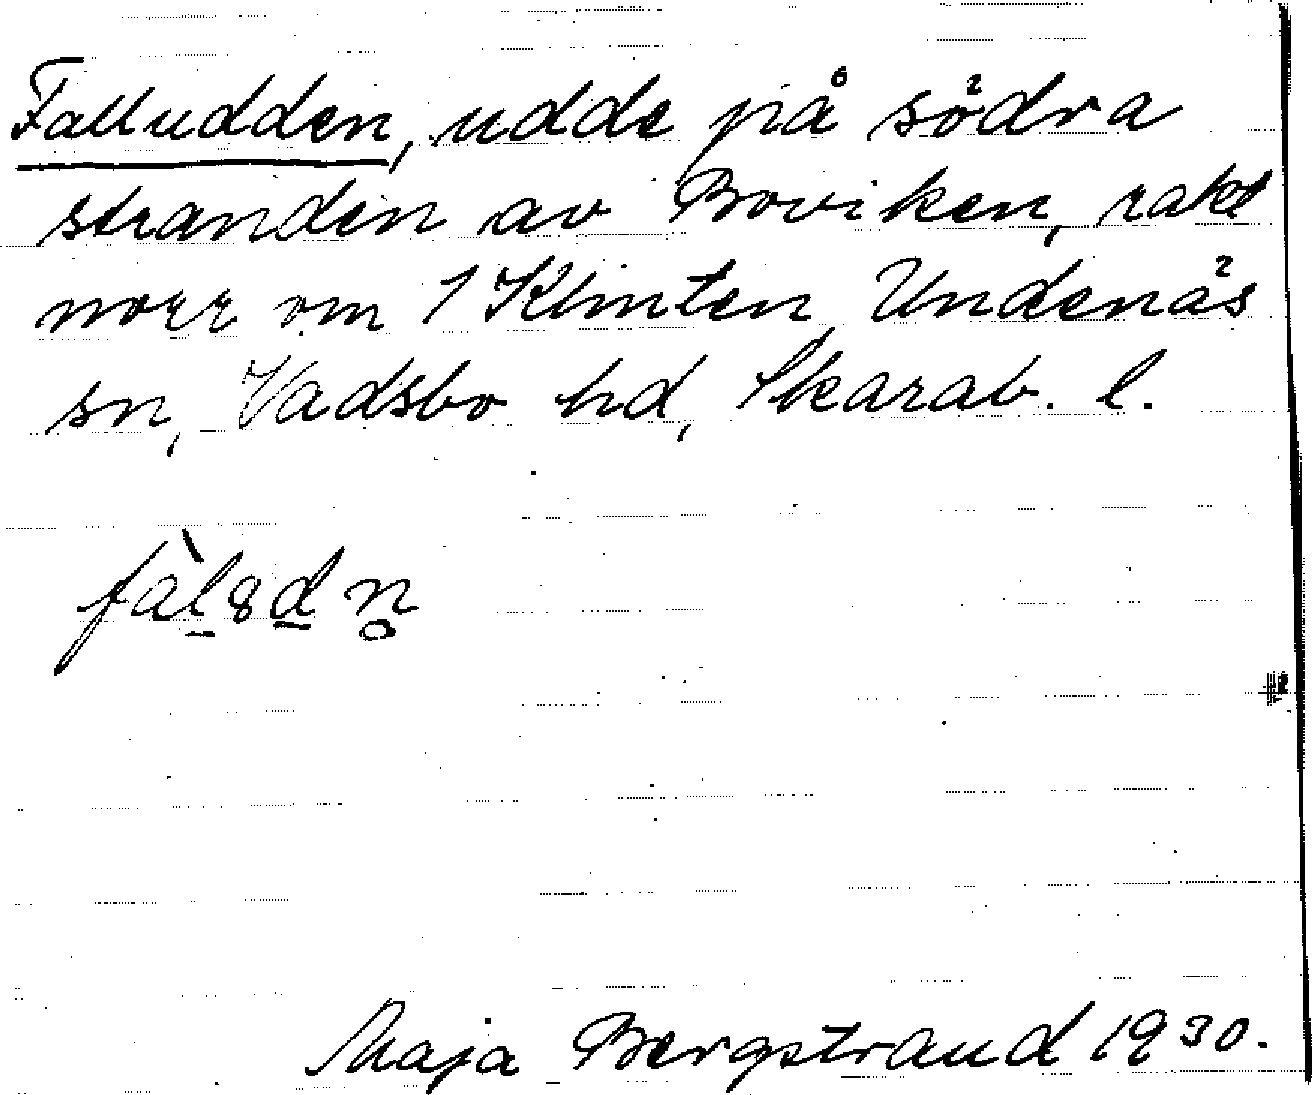 Falludden, udde på södra
stranden av Boviken, rakt
norr om 1 Klinten, Undenäs
sn, Vadsbo hd, Skarab. l.
fàl8dn̥
Maja Bergstrand 1930.